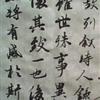 故列叙時人錄
雖世殊事異
懷其致一也後
將有感於斯